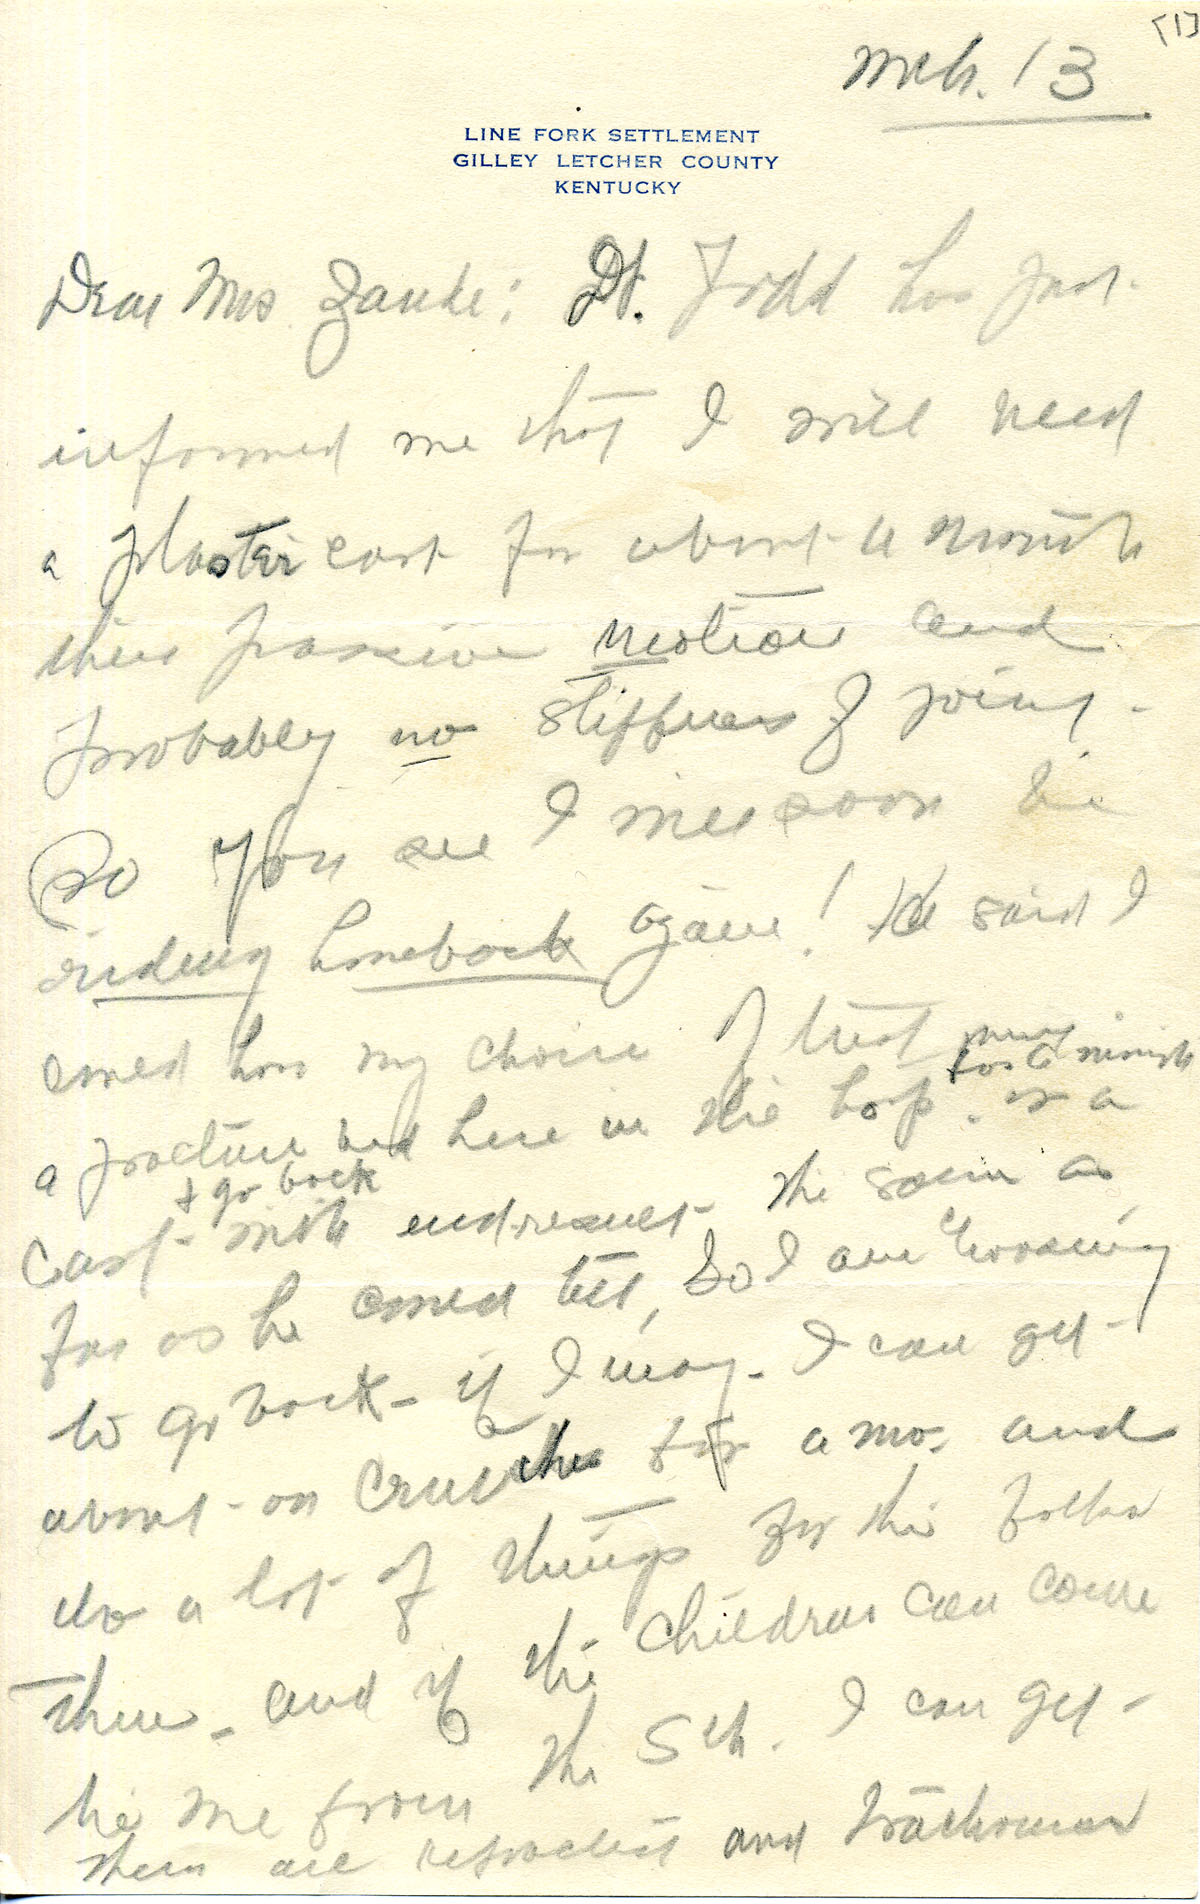 [1]
Mch. 13
LINE FORK SETTLEMENT
GILLEY LETCHER COUNTY
KENTUCKY
Dear Mrs Zande: Dr. Todd has just
informed me that I will need
a plaster cast for about a month
then passive motion and
probably no stiffness of joint.
So you see I may soon be
riding horseback again! He said I
could have my choice of
a fracture bed here in the hosp. for a month or a
cast & go back with end-result the same as
far as he could tell, So I am choosing
to go back - if I may. I can get
about on crutches for a mo. and
do a lot of things for the folks
there - and if the children can come
to me from the Sch. I can get
them all refracted and